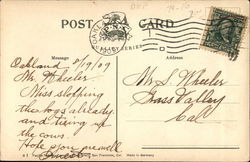 POST CARD
Message
Address
Oakland 5/19/09
Mr. Wheeler
Miss slopping
the hogs already
and tieing up
the cows.
Hope you are well
Mr. S. Wheeler
Grass Valley
Cal
San Francisco, Cal. Made in Germany